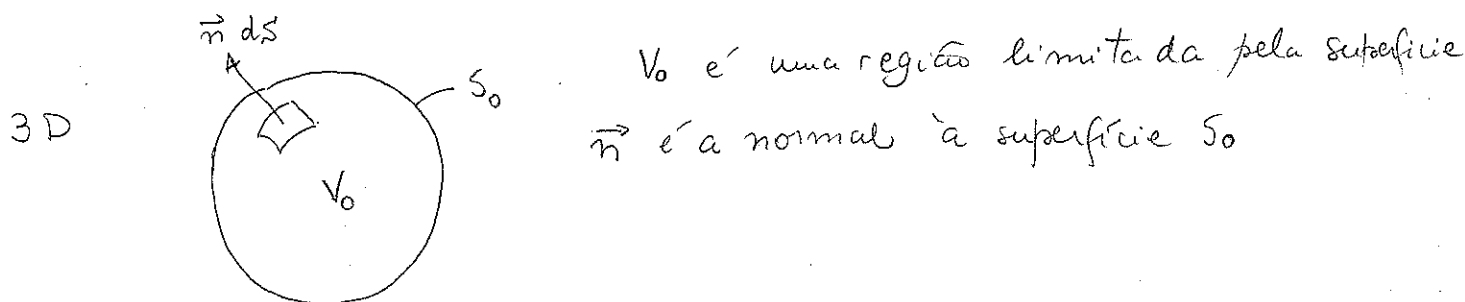 n⃗ dS
S₀
3D
V₀
V₀ é uma região limitada pela superfície
n⃗ é a normal à superfície S₀